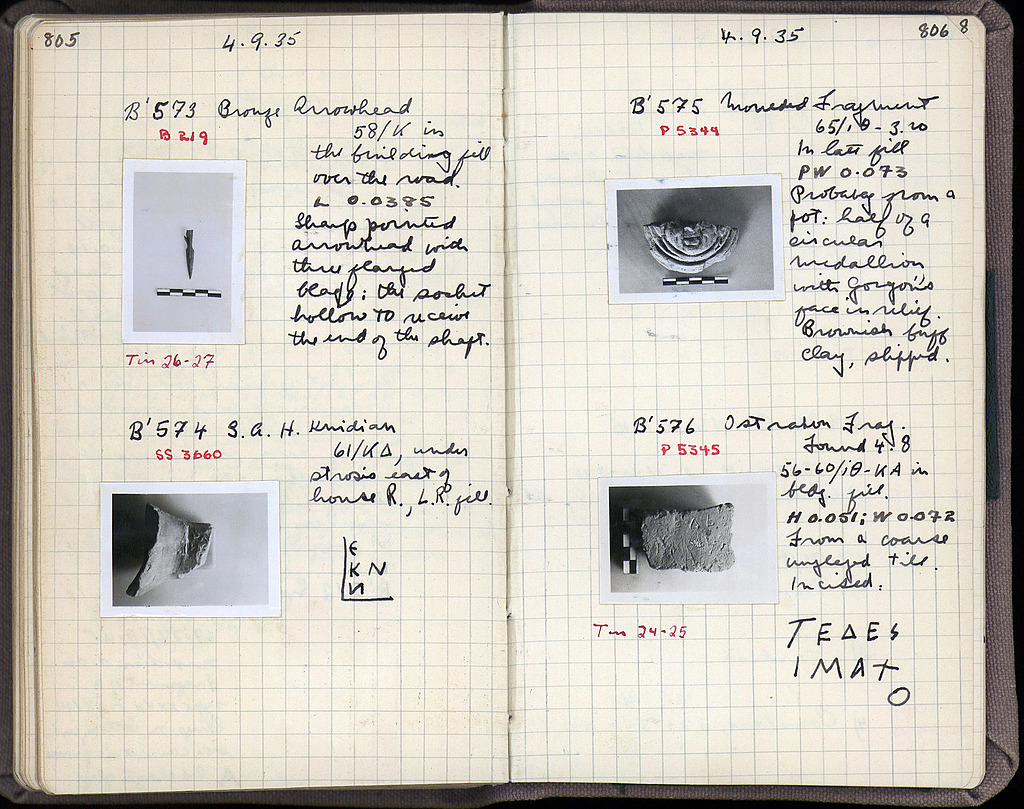 805
4.9.35
B'573 Bronze Arrowhead
B 219
58/K in
the building fill
over the road.
L 0.0385
Sharp pointed
arrowhead with
three flanged
blade; the socket
hollow to receive
the end of the shaft.
Tin 26-27
B'574 S.A.H. Knidian
SS 3660
61/ΚΔ, under
strosis east of
house R., L.R. fill.
Ε
ΚΝ
И
4.9.35
806 8
B'575 Moulded Fragment
P 5344
65/ιθ - 3.20
In late fill
PW 0.073
Probably from a
pot: half of a
circular
medallion
with Gorgon's
face in relief.
Brownish buff
clay, slipped.
B'576 Ostrakon Frag.
P 5345
Found 4.8
56-60/ιθ-ΚΑ in
bldg. fill.
H 0.051; W 0.072
From a coarse
unglazed tile.
Incised:
ΤΕΔΕS
ΙΜΑΧ
Ο
Tin 24-25